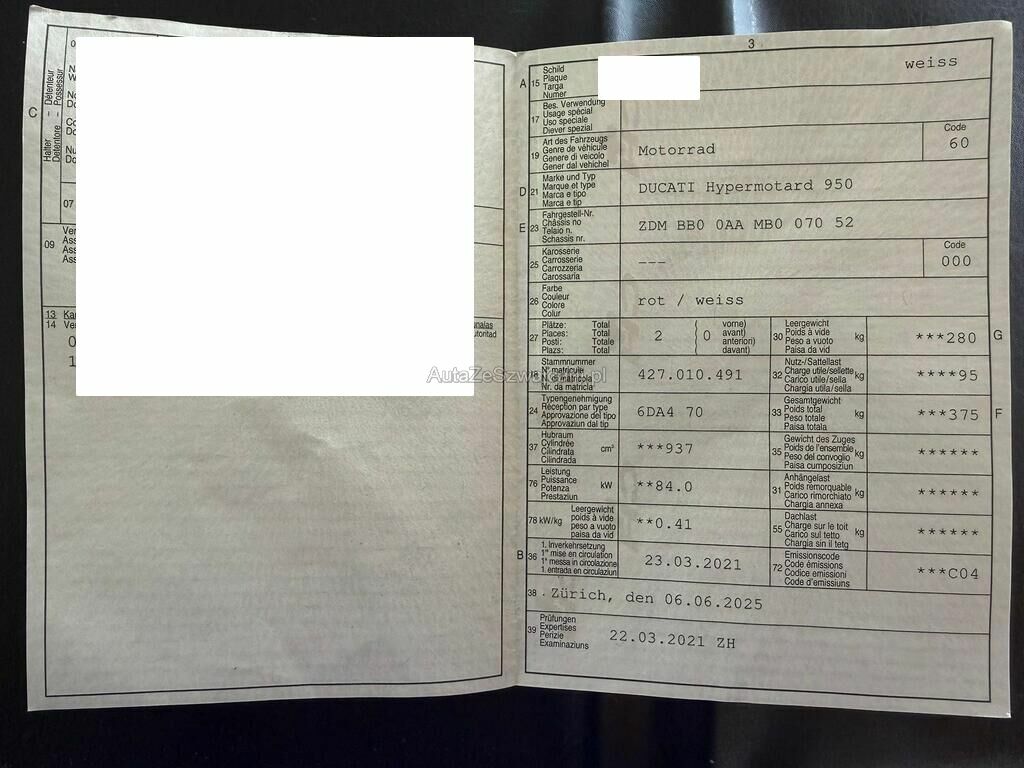 C
Halter – Détenteur
Detentore – Possessur
07
09
13
14
3
A 15 Schild
Plaque
Targa
Numer
weiss
17 Bes. Verwendung
Usage spécial
Uso speciale
Diever spezial
19 Art des Fahrzeugs
Genre de véhicule
Genere di veicolo
Gener dal vehichel
Motorrad
Code
60
D 21 Marke und Typ
Marque et type
Marca e tipo
Marca e tip
DUCATI Hypermotard 950
E 23 Fahrgestell-Nr.
Châssis no
Telaio n.
Schassis nr.
ZDM BB0 0AA MB0 070 52
25 Karosserie
Carrosserie
Carrozzeria
Carossaria
---
Code
000
26 Farbe
Couleur
Colore
Colur
rot / weiss
27 Plätze: Total
Places: Total
Posti: Totale
Plazs: Total
2
( 0 vorne)
avant)
anteriori)
davant)
30 Leergewicht
Poids à vide
Peso a vuoto
Paisa da vid
kg
***280
G
Stammnummer
N° matricule
N. matricola
Nr. da matricla
427.010.491
32 Nutz-/Sattellast
Charge utile/sellette
Carico utile/sella
Chargia utila/sella
kg
****95
24 Typengenehmigung
Réception par type
Approvazione del tipo
Approvaziun dal tip
6DA4 70
33 Gesamtgewicht
Poids total
Peso totale
Paisa totala
kg
***375
F
37 Hubraum
Cylindrée
Cilindrata
Cilindrada
cm³
***937
35 Gewicht des Zuges
Poids de l'ensemble
Peso del convoglio
Paisa cumposiziun
kg
******
76 Leistung
Puissance
Potenza
Prestaziun
kW
**84.0
31 Anhängelast
Poids remorquable
Carico rimorchiato
Chargia annexa
kg
******
78 kW/kg
Leergewicht
poids à vide
peso a vuoto
paisa da vid
**0.41
55 Dachlast
Charge sur le toit
Carico sul tetto
Chargia sin il tetg
kg
******
B 36 1. Inverkehrsetzung
1re mise en circulation
1a messa in circolazione
1. entrada en circulaziun
23.03.2021
72 Emissionscode
Code émissions
Codice emissioni
Code d'emissiuns
***C04
38 Zürich, den 06.06.2025
39 Prüfungen
Expertises
Perizie
Examinaziuns
22.03.2021 ZH
AutaZeSzwajcarii.pl